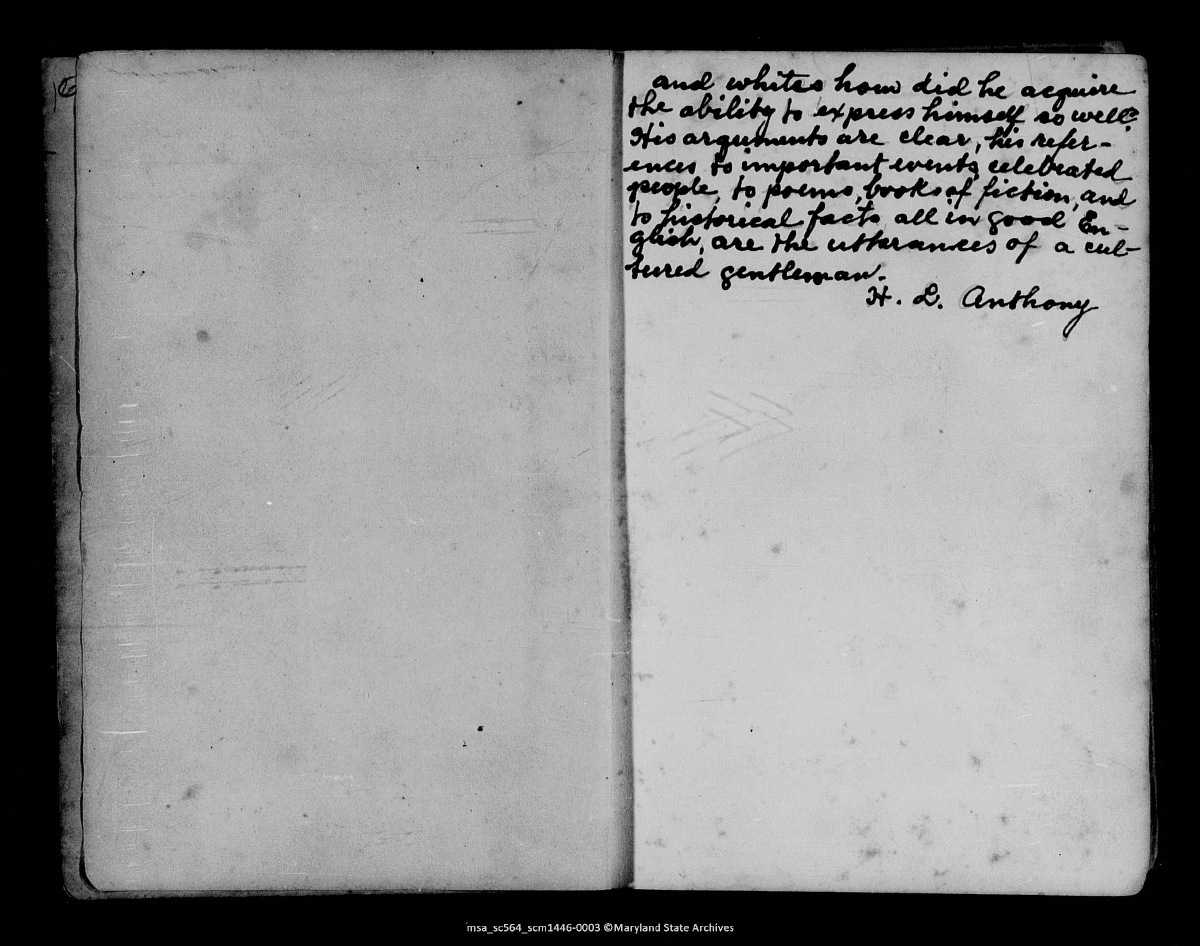 and whites how did he acquire
the ability to express himself so well?
His arguments are clear, his refer-
ences to important events, celebrated
people, to poems, books of fiction, and
to historical facts all in good En-
glish, are the utterances of a cul-
tured gentleman.
H. L. Anthony
msa_sc564_scm1446-0003 ©Maryland State Archives